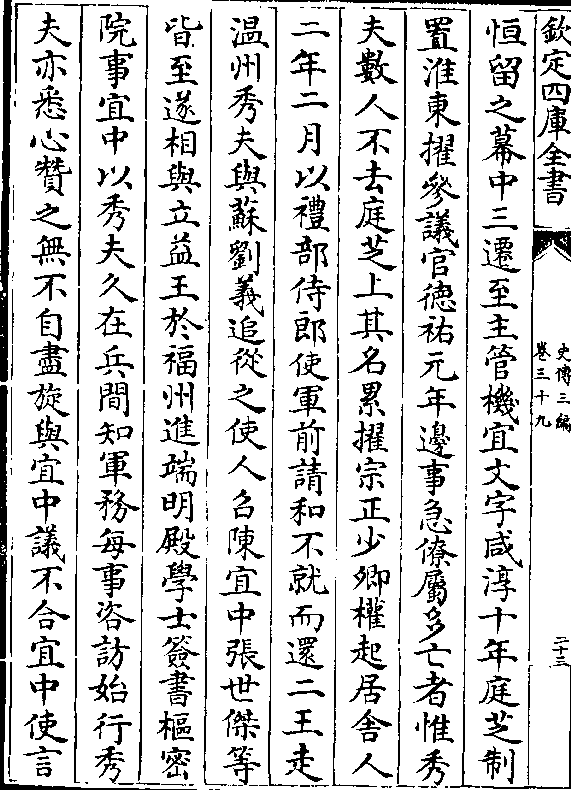 欽定四庫全書
史傳三編
卷三十九
二十三
恒留之幕中三遷至主管機宜文字咸淳十年庭芝制
置淮東擢參議官德祐元年邊事急僚屬多亡者惟秀
夫數人不去庭芝上其名累擢宗正少卿權起居舍人
二年二月以禮部侍郎使軍前請和不就而還二王走
温州秀夫與蘇劉義追從之使人召陳宜中張世傑等
皆至遂相與立益王於福州進端明殿學士簽書樞密
院事宜中以秀夫久在兵間知軍務每事咨訪始行秀
夫亦悉心贊之無不自盡旋與宜中議不合宜中使言